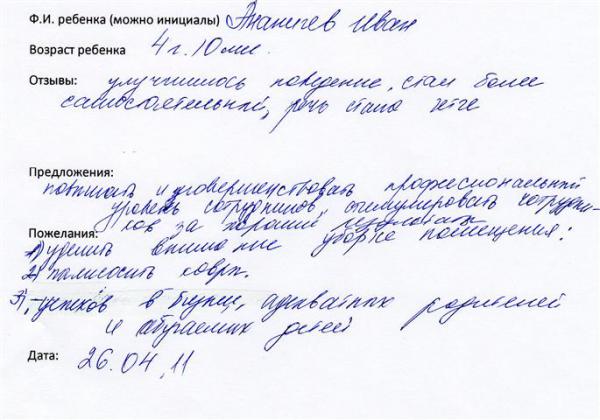 Ф.И. ребенка (можно инициалы) Ананичев Иван
Возраст ребенка 4 г. 10 мес.
Отзывы: улучшилось поведение, стал более
самостоятельный, речь стала четче
Предложения:
повышать и усовершенствовать профессиональный
уровень сотрудников, стимулировать сотрудни-
ков за хорошие результаты
Пожелания:
1) уделить внимание уборке помещения:
2) пылесосить ковры.
3) успехов в бизнесе, адекватных родителей
и обучаемых детей
Дата: 26.04.11